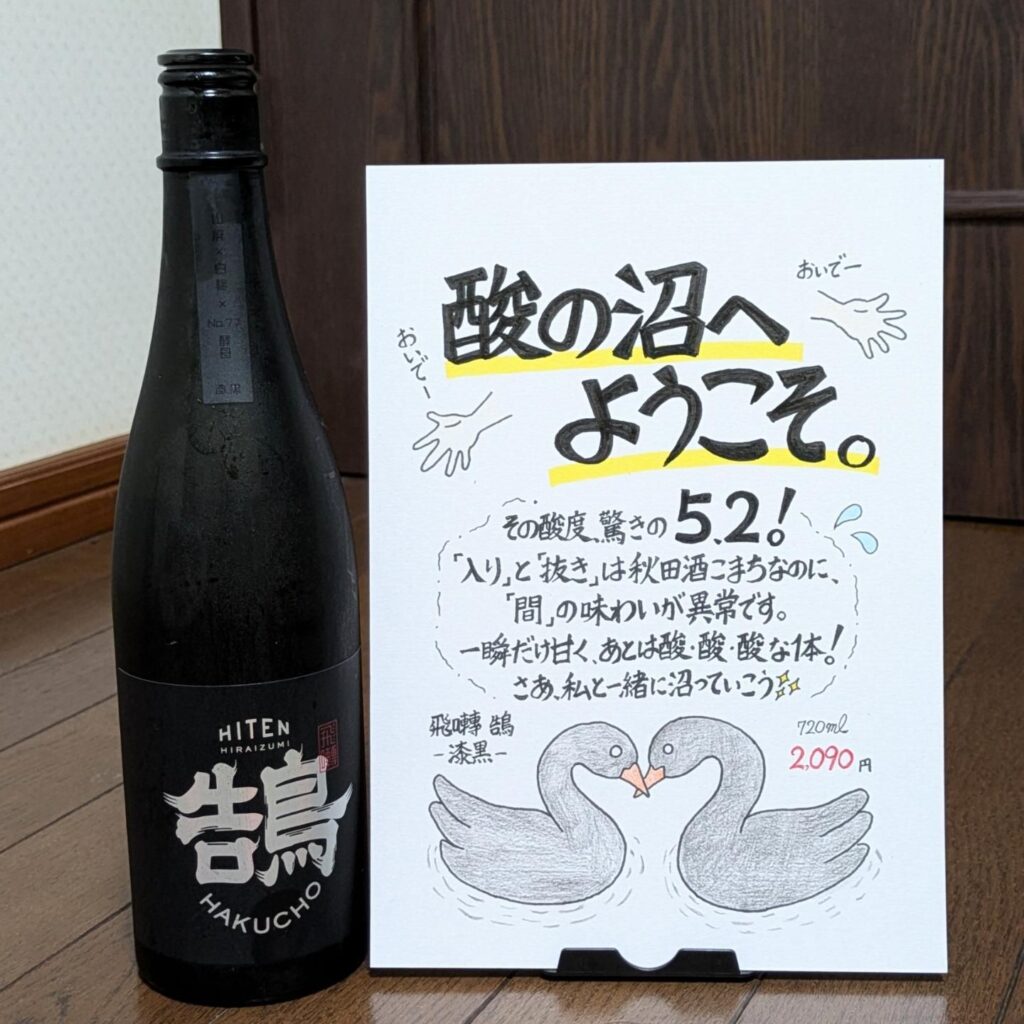 山廃×白麹×No.77酵母 漆黒
HITEN
HIRAIZUMI
飛囀
鵠
HAKUCHO
酸の沼へ
ようこそ。
おいでー
おいでー
その酸度、驚きの 5.2!
「入り」と「抜き」は秋田酒こまちなのに、
「間」の味わいが異常です。
一瞬だけ甘く、あとは酸・酸・酸な1本!
さあ、私と一緒に沼っていこう✨
飛囀 鵠
-漆黒-
720ml
2,090円